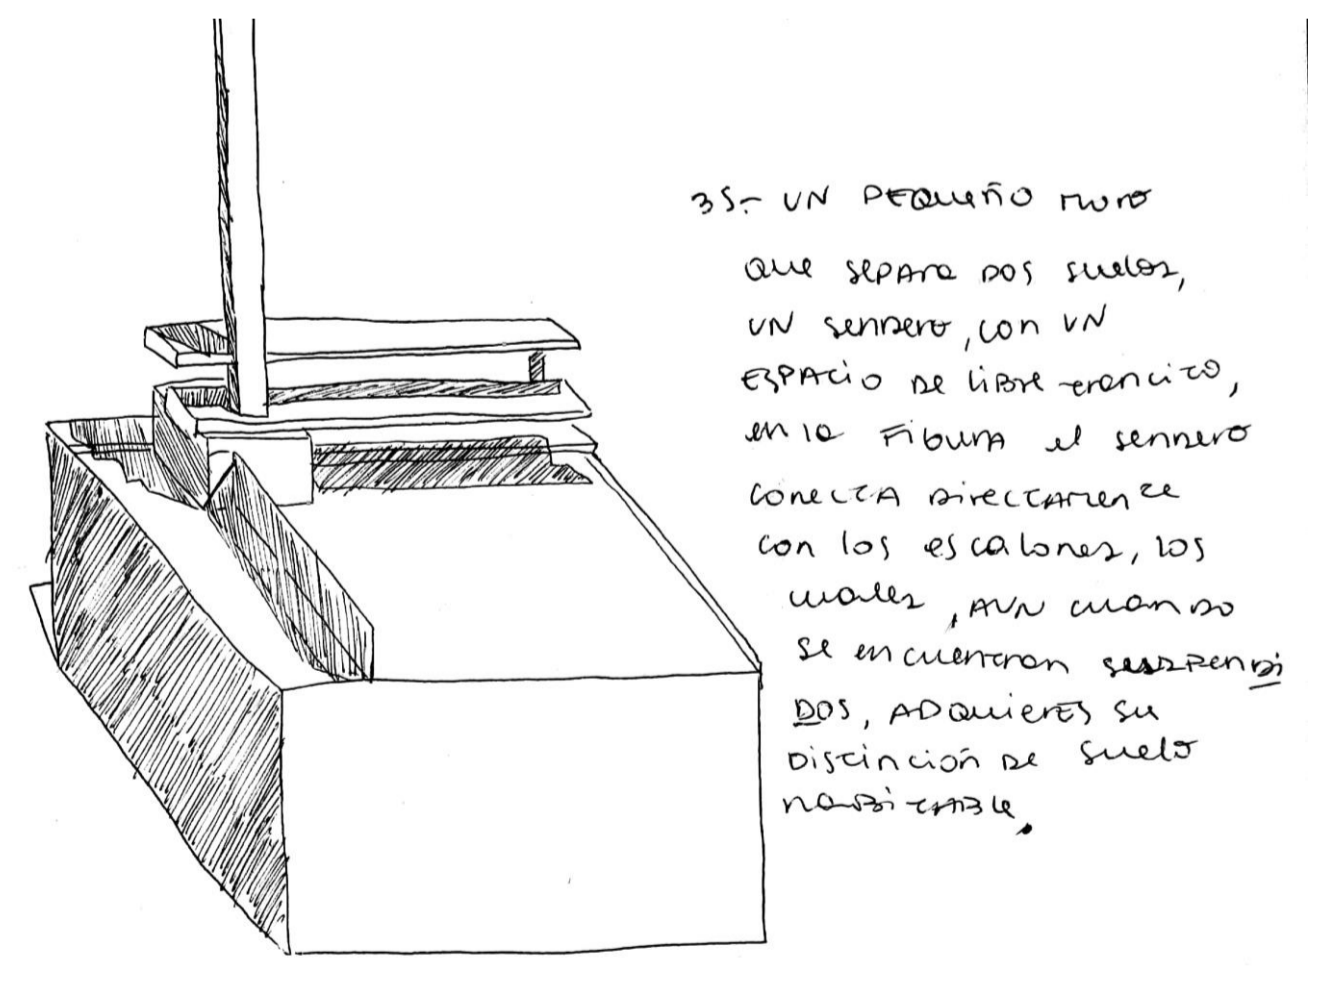 35.- UN PEQUEÑO MURO
QUE SEPARA DOS SUELOS,
UN SENDERO, CON UN
ESPACIO DE LIBRE TRANCITO,
EN LA FIGURA EL SENDERO
CONECTA DIRECTAMENTE
CON LOS ESCALONES, LOS
CUALES, AUN CUANDO
SE ENCUENTRAN SUSPENDI
DOS, ADQUIERES SU
DISTINCIÓN DE SUELO
HABITABLE.